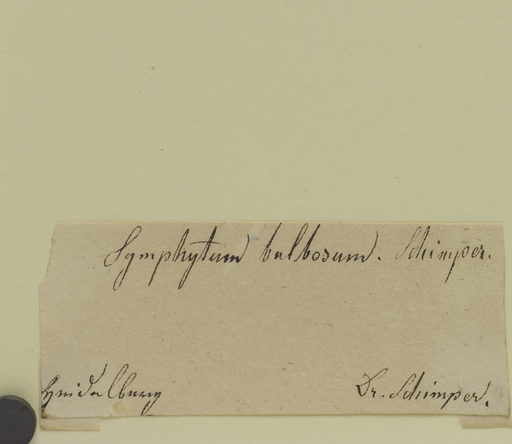 Symphytum bulbosum. Schimper.
Heidelburg Dr. Schimper.